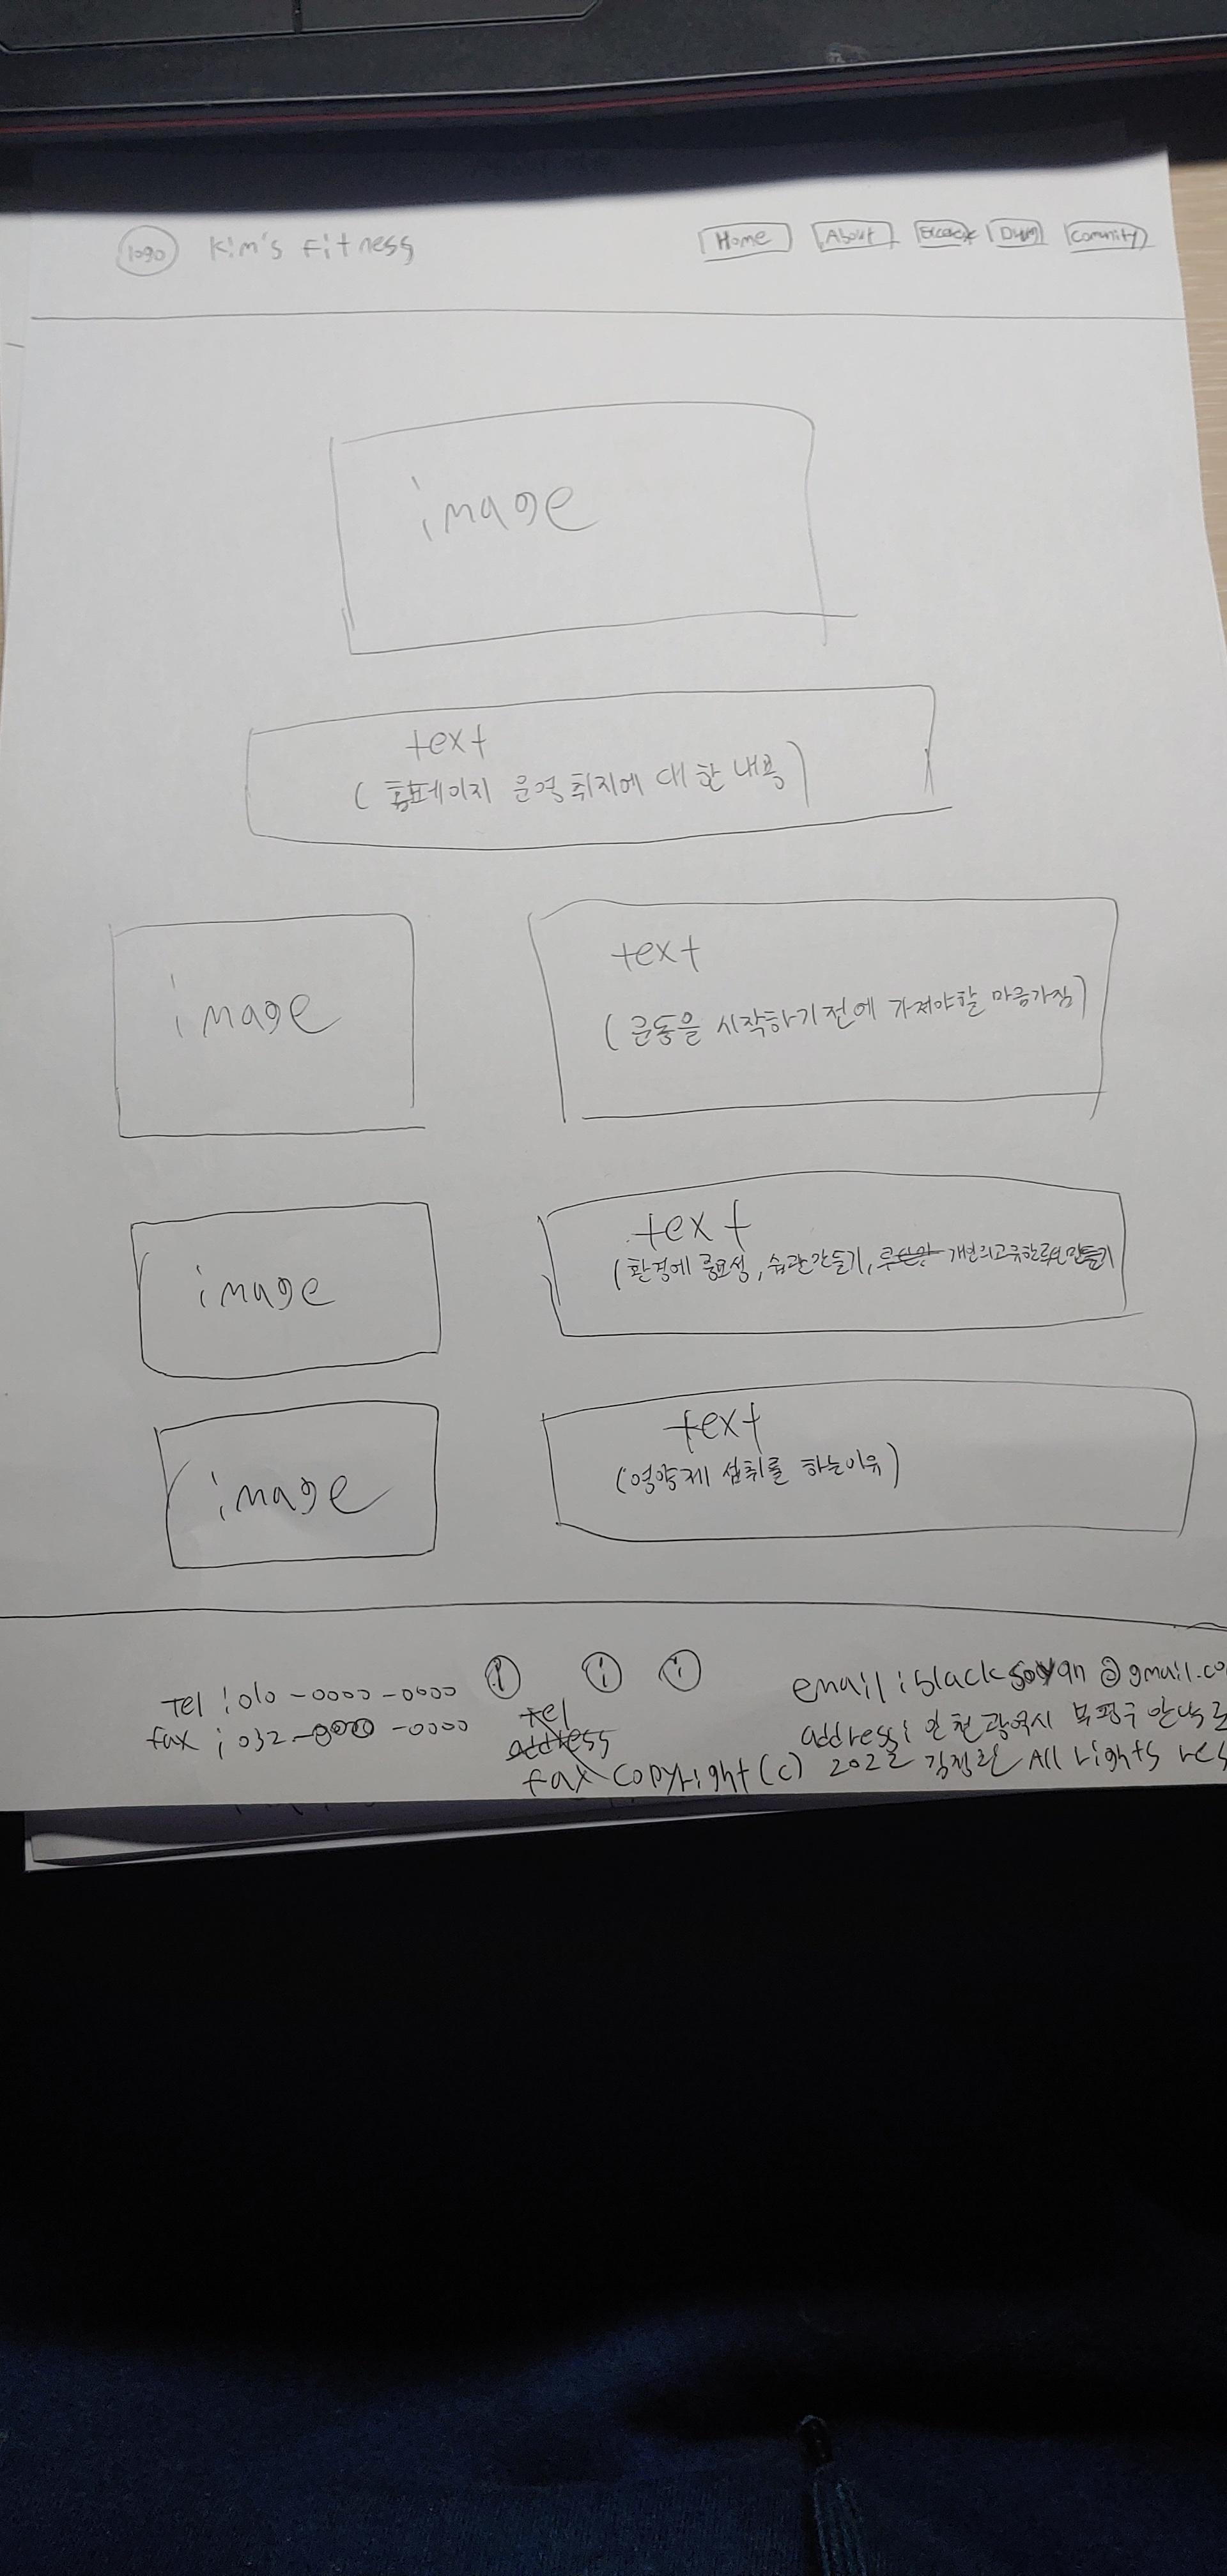 logo Kim's Fitness Home About Community
image
text
(홈페이지 운영 취지에 대한 내용)
image
text
(운동을 시작하기 전에 가져야할 마음가짐)
image
text
(환경에 중요성, 습관 만들기, 개인의 고유한 루틴 만들기
image
text
(영양제 섭취를 하는 이유)
tel : 010-0000-0000
fax ; 032-0000-0000
tel
address
fax
email : @gmail.co
address : 인천광역시 부평구
copyright (c) 2022 All rights res